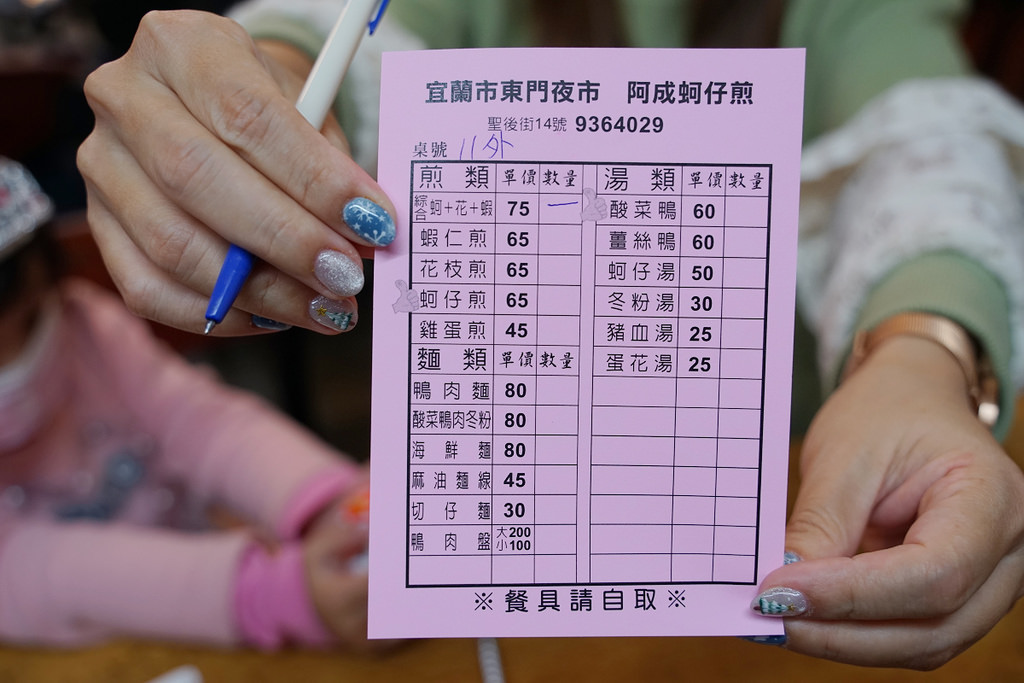 宜蘭市東門夜市 阿成蚵仔煎
聖後街14號 9364029
桌號 11外
煎類 單價 數量
綜合 蚵+花+蝦 75 一
蝦仁煎 65
花枝煎 65
蚵仔煎 65
雞蛋煎 45
麵類 單價 數量
鴨肉麵 80
酸菜鴨肉冬粉 80
海鮮麵 80
麻油麵線 45
切仔麵 30
鴨肉盤 大200 小100
湯類 單價 數量
酸菜鴨 60
薑絲鴨 60
蚵仔湯 50
冬粉湯 30
豬血湯 25
蛋花湯 25
※餐具請自取※